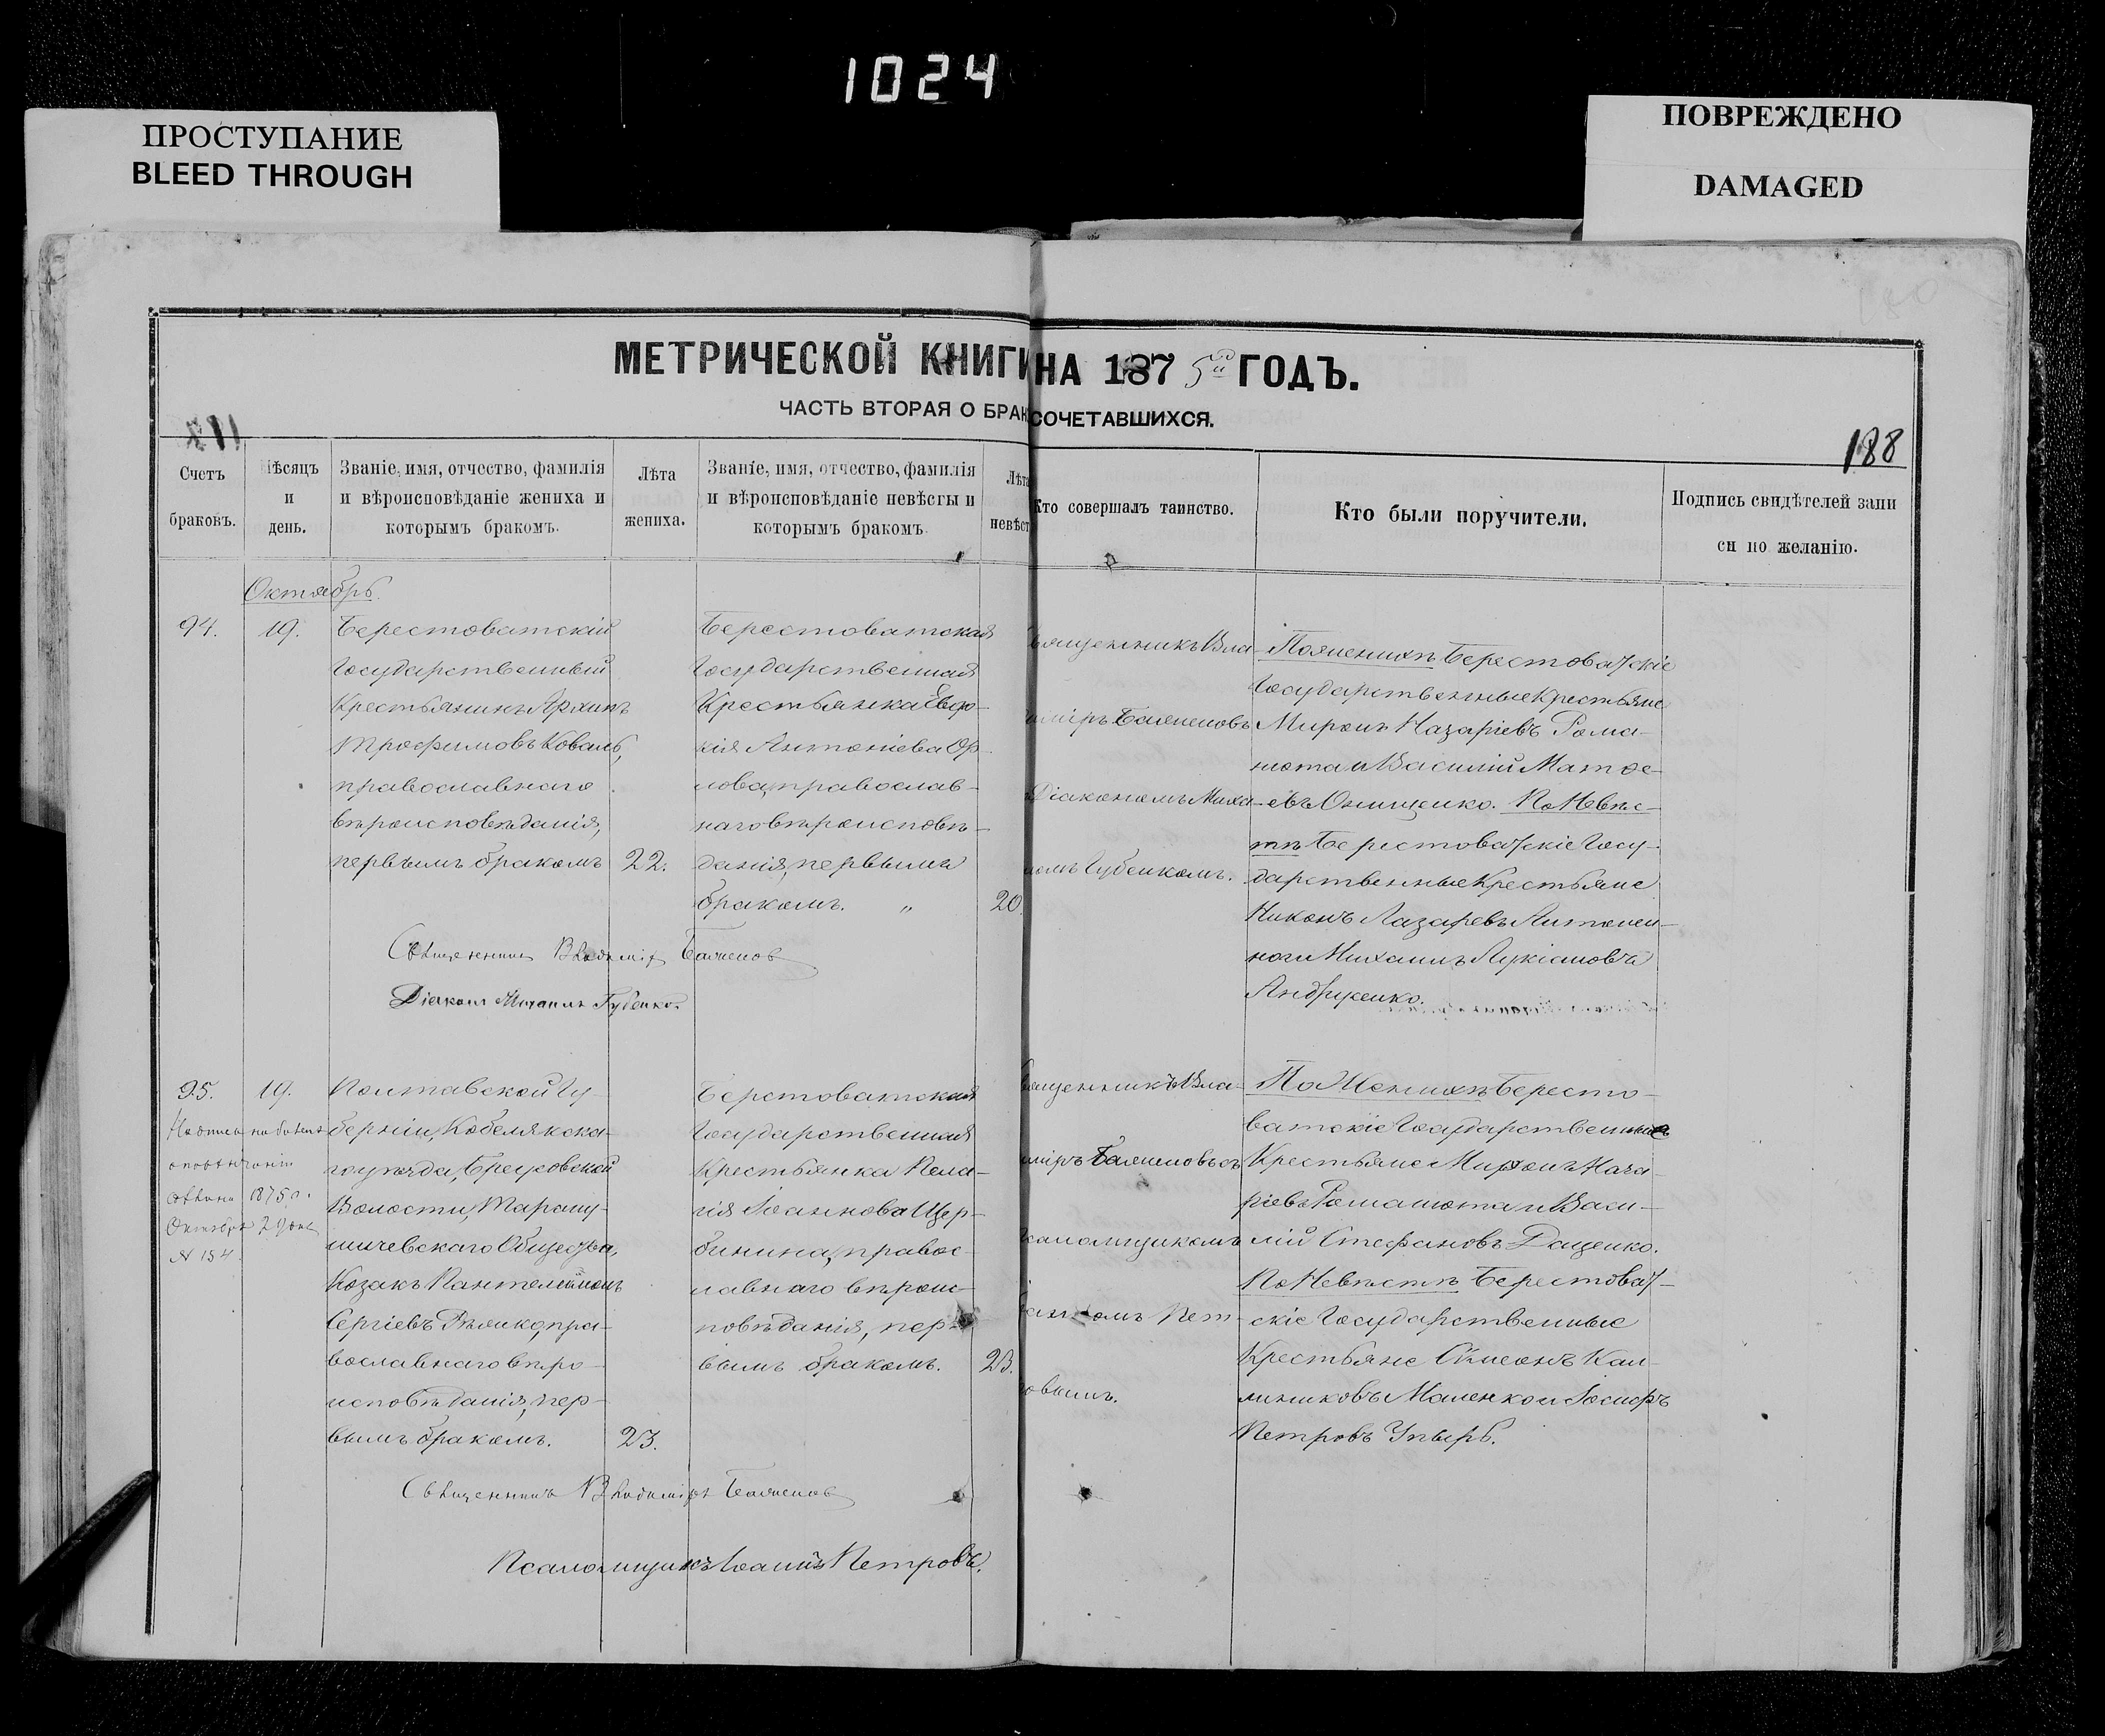 1024
ПРОСТУПАНИЕ
BLEED THROUGH
ПОВРЕЖДЕНО
DAMAGED
МЕТРИЧЕСКОЙ КНИГИ НА 1875й ГОДЪ.
ЧАСТЬ ВТОРАЯ О БРАКОСОЧЕТАВШИХСЯ.
188
Счетъ
браковъ.
Мѣсяцъ
и
день.
Званіе, имя, отчество, фамилія
и вѣроисповѣданіе жениха и
которымъ бракомъ.
Лѣта
жениха.
Званіе, имя, отчество, фамилія
и вѣроисповѣданіе невѣсты и
которымъ бракомъ.
Лѣта
невѣст
Кто совершалъ таинство.
Кто были поручители.
Подпись свидѣтелей запи
си по желанію.
Октябрь.
94.
19.
Берестоватскій
Государственный
Крестьянинъ Архипъ
Трофимовъ Коваль,
православнаго
вѣроисповѣданія,
первымъ бракомъ
22.
Берестоватская
Государственная
Крестьянка Евдо-
кія Антоніева Ор-
лова, православ-
наго вѣроисповѣ-
данія, первымъ
бракомъ. „
20.
вященникъ Вла-
иміръ Баженовъ
Діакономъ Миха-
ломъ Губенкомъ.
По Женихѣ Берестоватскіе
Государственные Крестьяне
Миронъ Назаріевъ Рома-
нюта и Василій Матѳе-
евъ Онищенко. По Невѣс-
тѣ Берестоватскіе Госу-
дарственные Крестьяне
Никонъ Лазаревъ Антонен-
ко и Михаилъ Лукіановъ
Андрусенко.
Священникъ Владиміръ Баженовъ
Діаконъ Михаилъ Губенко.
95.
19.
октября 2 дня
№ 154.
Полтавской Гу-
берніи, Кобелякска-
го уѣзда, Бреусовской
Волости,
Общества,
Козакъ Пантелеймонъ
Сергіевъ пра-
вославнаго вѣро-
исповѣданія, пер-
вымъ бракомъ.
23.
Берстоватская
Государственная
Крестьянка Пела-
гія Іоаннова Щер-
бинина, правос-
лавнаго вѣроис-
повѣданія, пер-
вымъ бракомъ.
23.
вященникъ Вла-
иміръ Баженовъ съ
саломщикомъ
Пет-
ровымъ.
По Женихѣ Бересто-
ватскіе Государственные
Крестьяне Миронъ Наза-
ріевъ Романюта и Васи-
лій Стефановъ Даценко.
По Невѣстѣ Берестоват-
скіе Государственные
Крестьяне Сѵмеонъ Кал-
линиковъ Маленко и Іосифъ
Петровъ Упырь.
Священникъ Владиміръ Баженовъ
Псаломщикъ Іоаннъ Петровъ.